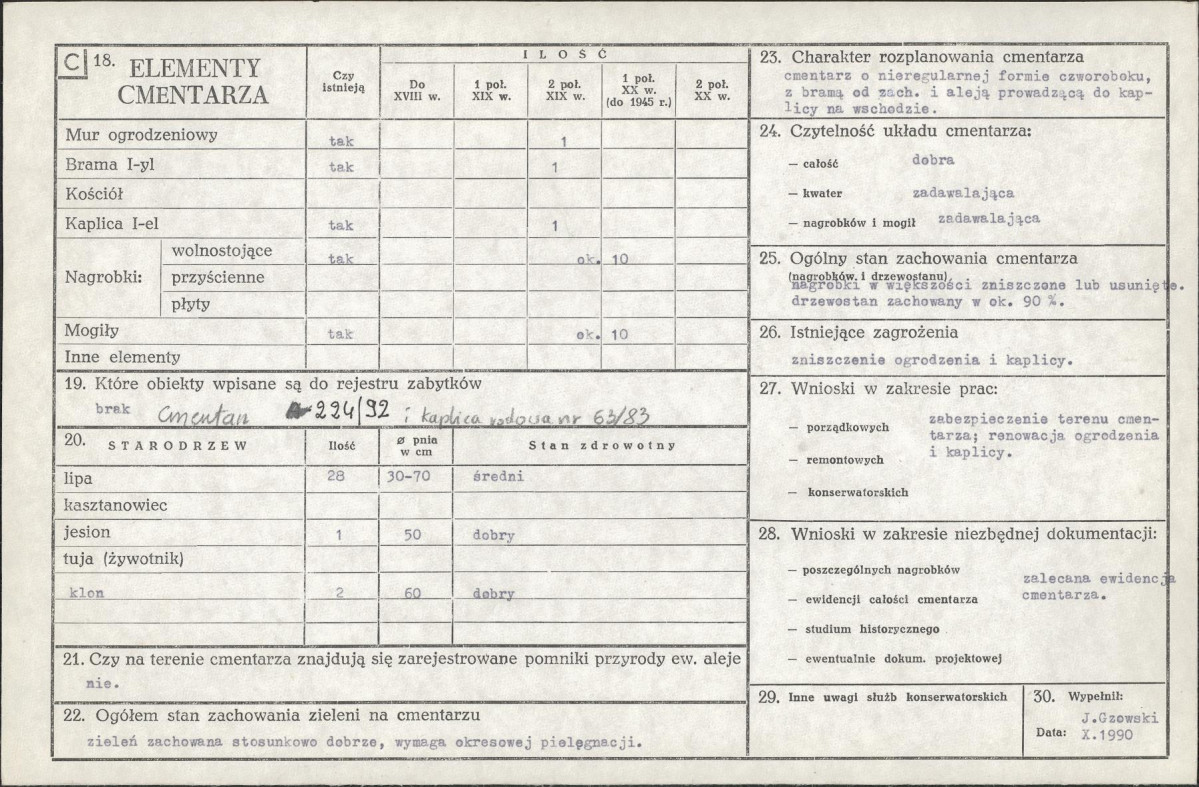 C 18. ELEMENTY CMENTARZA
Czy istnieją
ILOŚĆ
Do XVIII w.
1 poł. XIX w.
2 poł. XIX w.
1 poł. XX w. (do 1945 r.)
2 poł. XX w.
Mur ogrodzeniowy tak 1
Brama I-yl tak 1
Kościół
Kaplica I-el tak 1
Nagrobki:
wolnostojące tak ok. 10
przyścienne
płyty
Mogiły tak ok. 10
Inne elementy
19. Które obiekty wpisane są do rejestru zabytków
brak cmentarz 224/92 i kaplica rodowa nr 63/83
20. STARODRZEW Ilość ø pnia w cm Stan zdrowotny
lipa 28 30-70 średni
kasztanowiec
jesion 1 50 dobry
tuja (żywotnik)
klon 2 60 dobry
21. Czy na terenie cmentarza znajdują się zarejestrowane pomniki przyrody ew. aleje
nie.
22. Ogółem stan zachowania zieleni na cmentarzu
zieleń zachowana stosunkowo dobrze, wymaga okresowej pielęgnacji.
23. Charakter rozplanowania cmentarza
cmentarz o nieregularnej formie czworoboku,
z bramą od zach. i aleją prowadzącą do kap-
licy na wschodzie.
24. Czytelność układu cmentarza:
— całość dobra
— kwater zadawalająca
— nagrobków i mogił zadawalająca
25. Ogólny stan zachowania cmentarza
(nagrobków i drzewostanu)
nagrobki w większości zniszczone lub usunięte.
drzewostan zachowany w ok. 90 %.
26. Istniejące zagrożenia
zniszczenie ogrodzenia i kaplicy.
27. Wnioski w zakresie prac:
— porządkowych
— remontowych
— konserwatorskich
zabezpieczenie terenu cmen-
tarza; renowacja ogrodzenia
i kaplicy.
28. Wnioski w zakresie niezbędnej dokumentacji:
— poszczególnych nagrobków
— ewidencji całości cmentarza
— studium historycznego
— ewentualnie dokum. projektowej
zalecana ewidencja
cmentarza.
29. Inne uwagi służb konserwatorskich
30. Wypełnił:
J.Gzowski
Data: X.1990